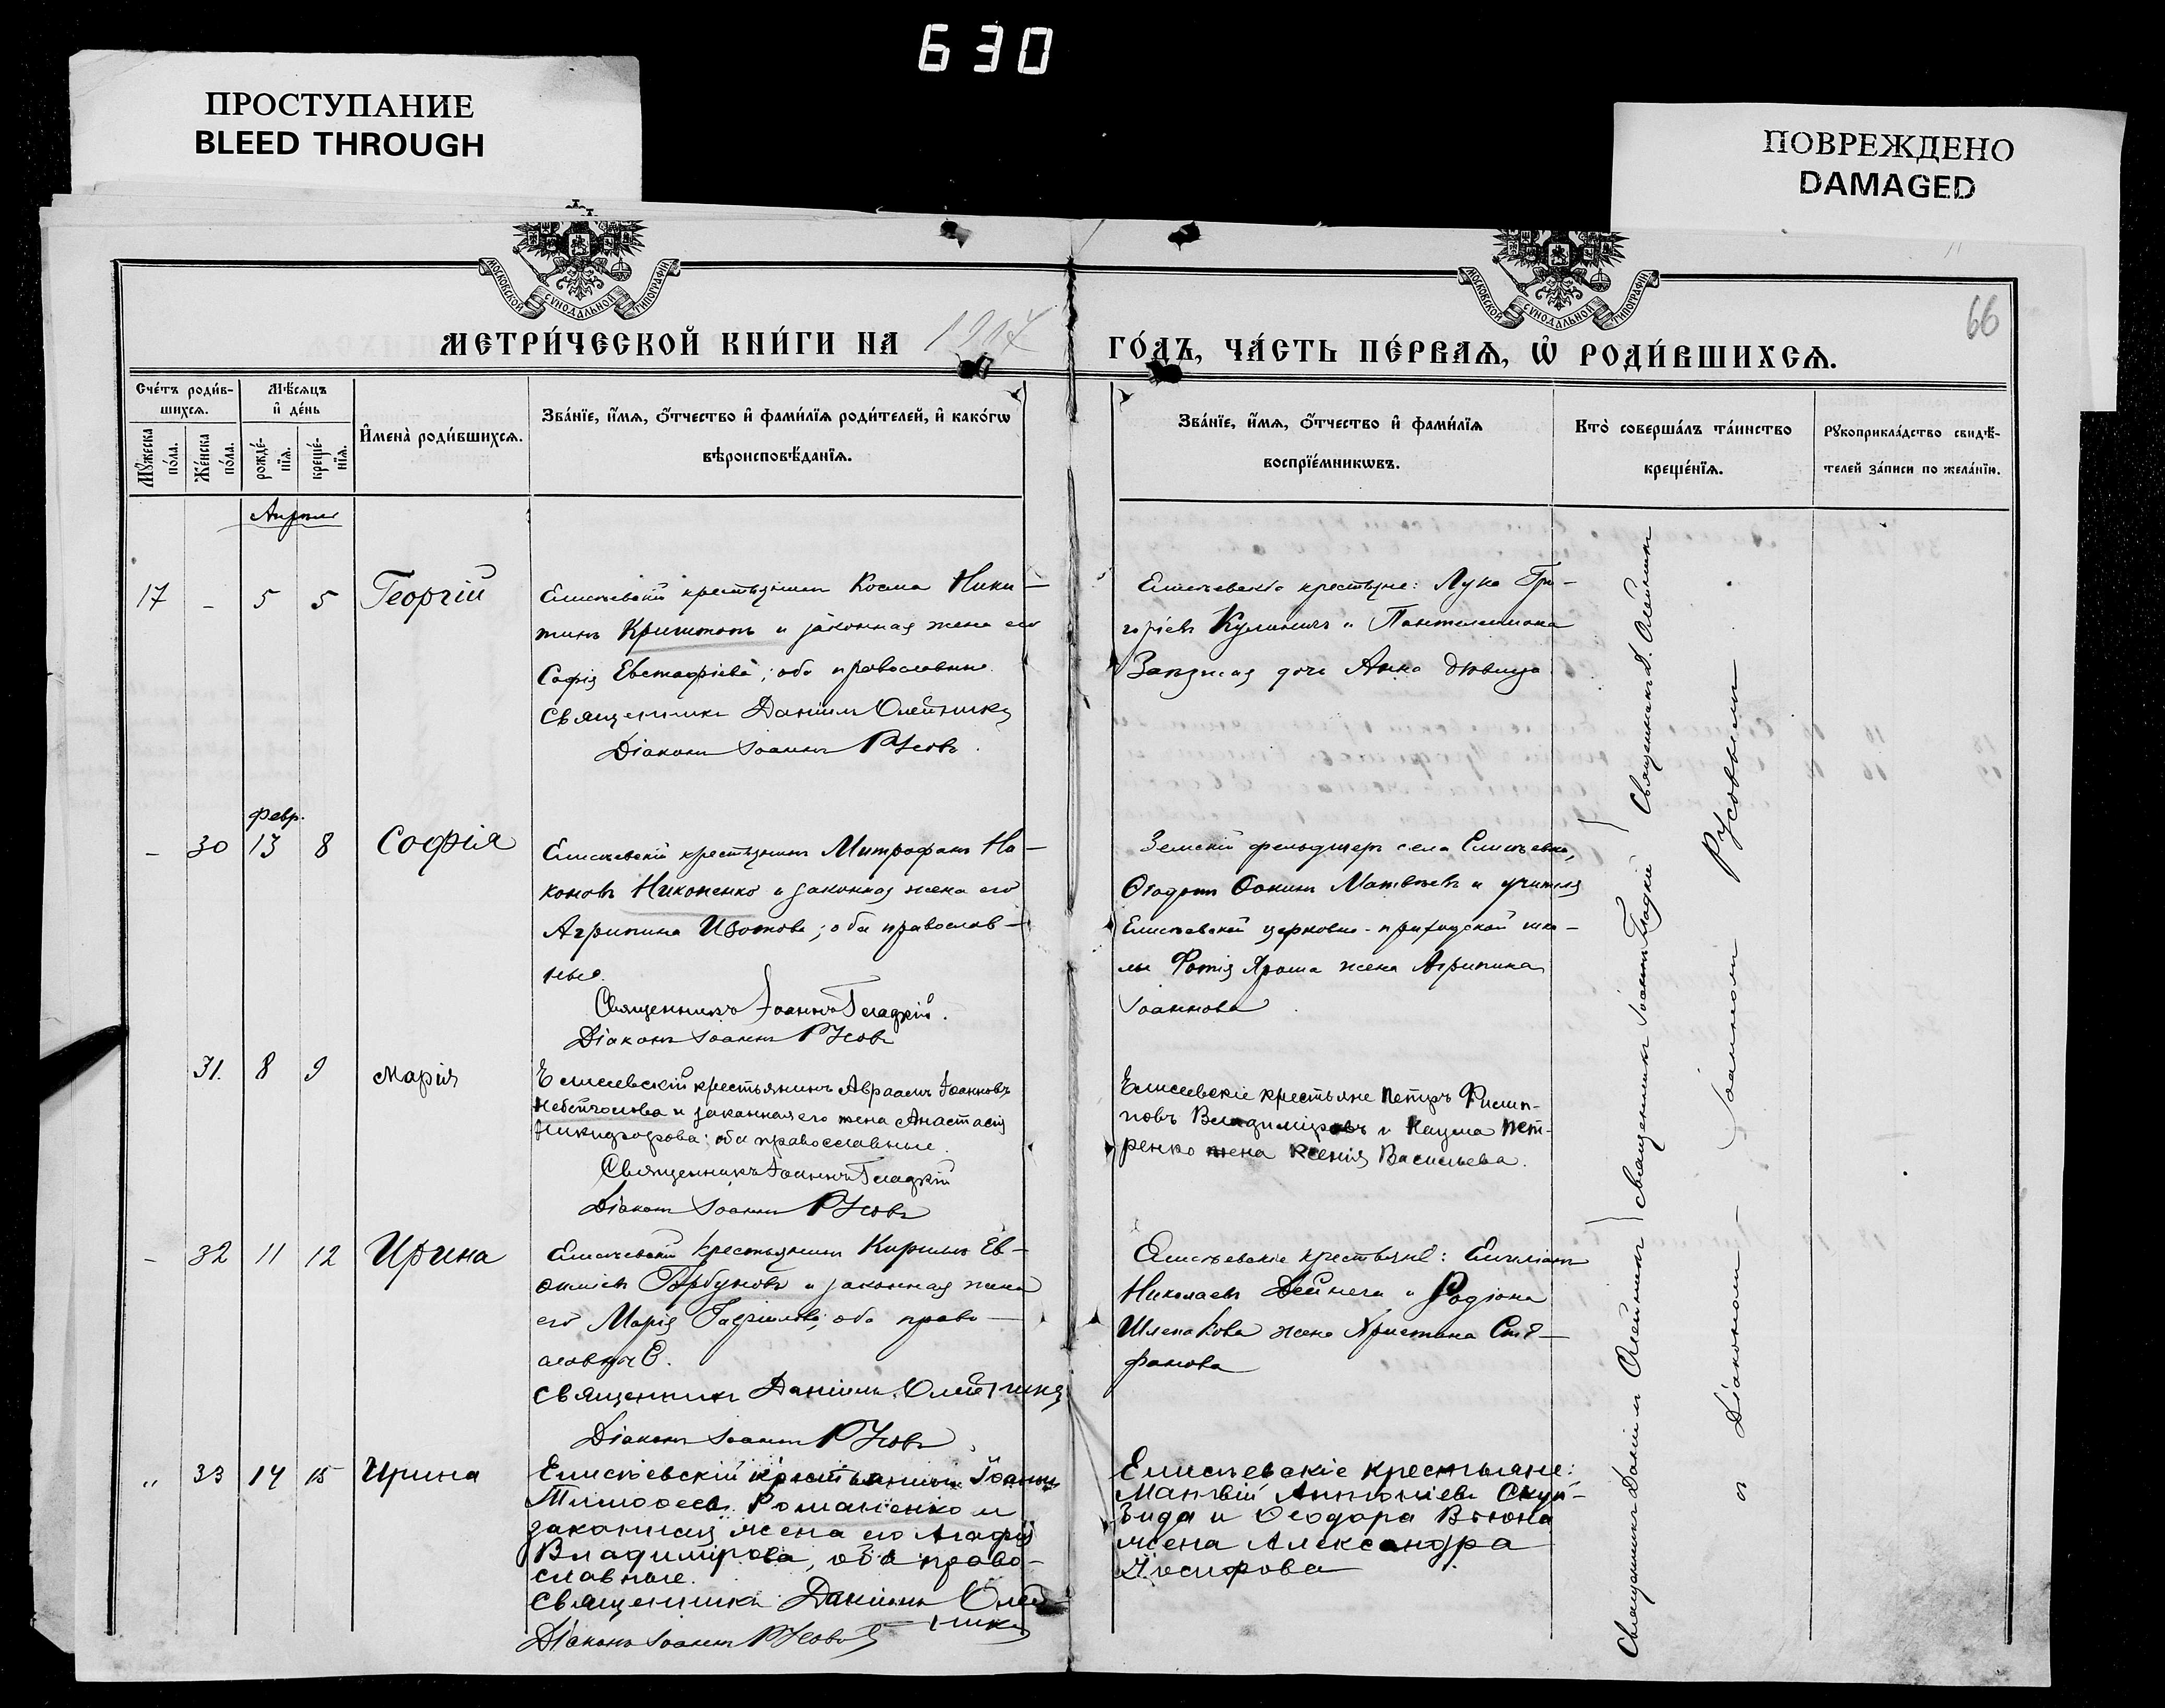 630
ПРОСТУПАНИЕ
BLEED THROUGH
ПОВРЕЖДЕНО
DAMAGED
МОСКОВСКОЙ СѴНОДАЛЬНОЙ ТИПОГРАФІИ
МОСКОВСКОЙ СѴНОДАЛЬНОЙ ТИПОГРАФІИ
66
МЕТРИ́ЧЕСКОЙ КНИ́ГИ НА 1907 ГО́ДЪ, ЧА́СТЬ ПЕ́РВАѦ, Ѡ҆ РОДИ́ВШИХСѦ.
Сче́тъ роди́в-
шихсѧ.
Мꙋ́жеска по́ла.
Же́нска по́ла.
Мѣ́сѧцъ
и҆ де́нь
рожде́-
нїѧ.
креще́-
нїѧ.
И҆мена̀ роди́вшихсѧ.
Зва́нїе, и҆́мѧ, ѻ҆́тчество и҆ фами́лїѧ роди́телей, и҆ како́гѡ
вѣроисповѣ́данїѧ.
Зва́нїе, и҆́мѧ, ѻ҆́тчество и҆ фами́лїѧ
воспрїе́мникѡвъ.
Кто̀ соверша́лъ та́инство
креще́нїѧ.
Рꙋкоприкла́дство свидѣ́-
телей за́писи по жела́нїю.
Апрель
17 - 5 5 Георгій
Елисѣевскій крестьянинъ Косма Ники-
тинъ и законная жена его
Софія Евстафіева; оба православные.
Священникъ Даніилъ Олейникъ
Діаконъ Іоаннъ Русовъ.
Елисѣевскіе крестьяне: Лука Гри-
горіевъ и Пантелеимона
дочь Анна дѣвица
февр.
- 30 13 8 Софія
Елисѣевскій крестьянинъ Митрофанъ На-
комовъ Никоненко и законная жена его
Агрипина Изотова; оба православ-
ные.
Священникъ Іоаннъ Гладкій.
Діаконъ Іоаннъ Русовъ
Земскій фельдшеръ села Елисѣевки,
Матвѣевъ и учителя
Елисѣевской церковно-приходской шко-
лы Фотія Яроша жена Агрипина
Іоаннова
31. 8 9 Марія
Елисеевскій крестьянинъ Авраамъ Іоанновъ
и законная его жена Анастасія
Никифорова: оба православные.
Священникъ Іоаннъ Гладкій
Діаконъ Іоаннъ Русовъ
Елисеевскіе крестьяне Петръ Филип-
повъ Владиміровъ и Пет-
ренко жена Ксенія Васильева.
- 32 11 12 Ирина
Елисѣевскій крестьянинъ Кирилъ Ев-
Горбуновъ и законная жена
его Марія Гавріилова; оба право-
славные.
Священникъ Даніилъ Олейникъ
Діаконъ Іоаннъ Русовъ
Елисѣевскіе крестьяне: Емиліанъ
Николаевъ Дейнега и Родіона
Шлепакова жена Христина Сте-
фанова
„ 33 14 15 Ирина
Елисѣевскій крестьянинъ Іоаннъ
Тимоѳеевъ Романенко и
законная жена его Агафія
Владимірова, оба право-
славные.
Священникъ Даніилъ Олей-
никъ
Діаконъ Іоаннъ Русовъ
Елисѣевскіе крестьяне:
Матвѣй Антоніевъ Скуй-
бида и Ѳеодора Вьюна
жена Александра
Іосифова
Священникъ Даніилъ Олейникъ
Священникъ Іоаннъ Гладкій
Священникъ Д. Олейникъ
съ Діакономъ Іоанномъ Русовымъ